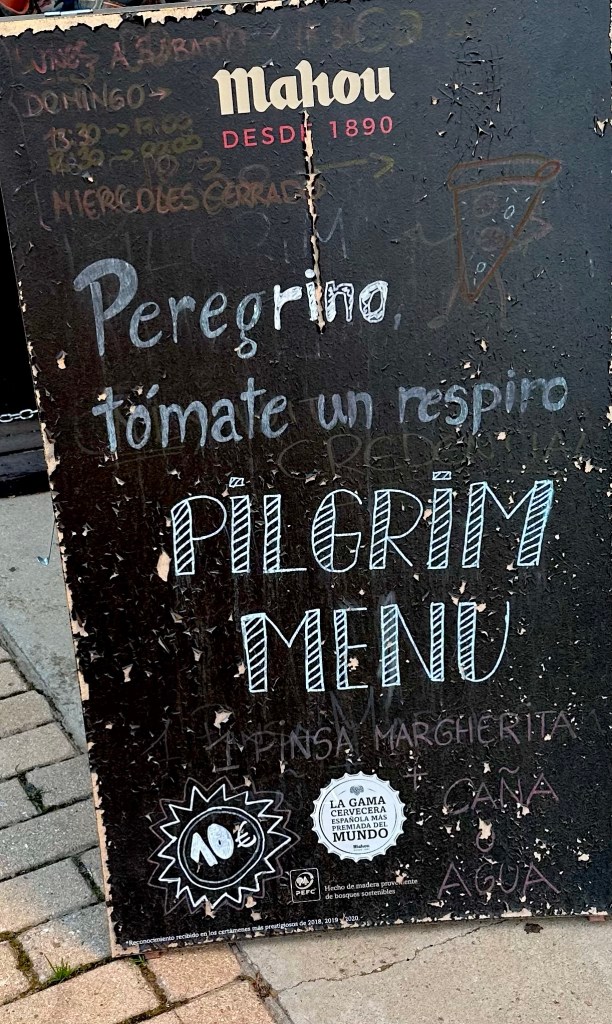 LUNES A SÁBADO
DOMINGO →
13:30 →
MIERCOLES CERRADO
Mahou
DESDE 1890
Peregrino,
tómate un respiro
PILGRIM
MENU
1 PINSA MARGHERITA
+
CAÑA
O
AGUA
10€
LA GAMA
CERVECERA
ESPAÑOLA MÁS
PREMIADA DEL
MUNDO
Mahou
PEFC
Hecho de madera proveniente
de bosques sostenibles
*Reconocimiento recibido en los certámenes más prestigiosos de 2018, 2019 y 2020.